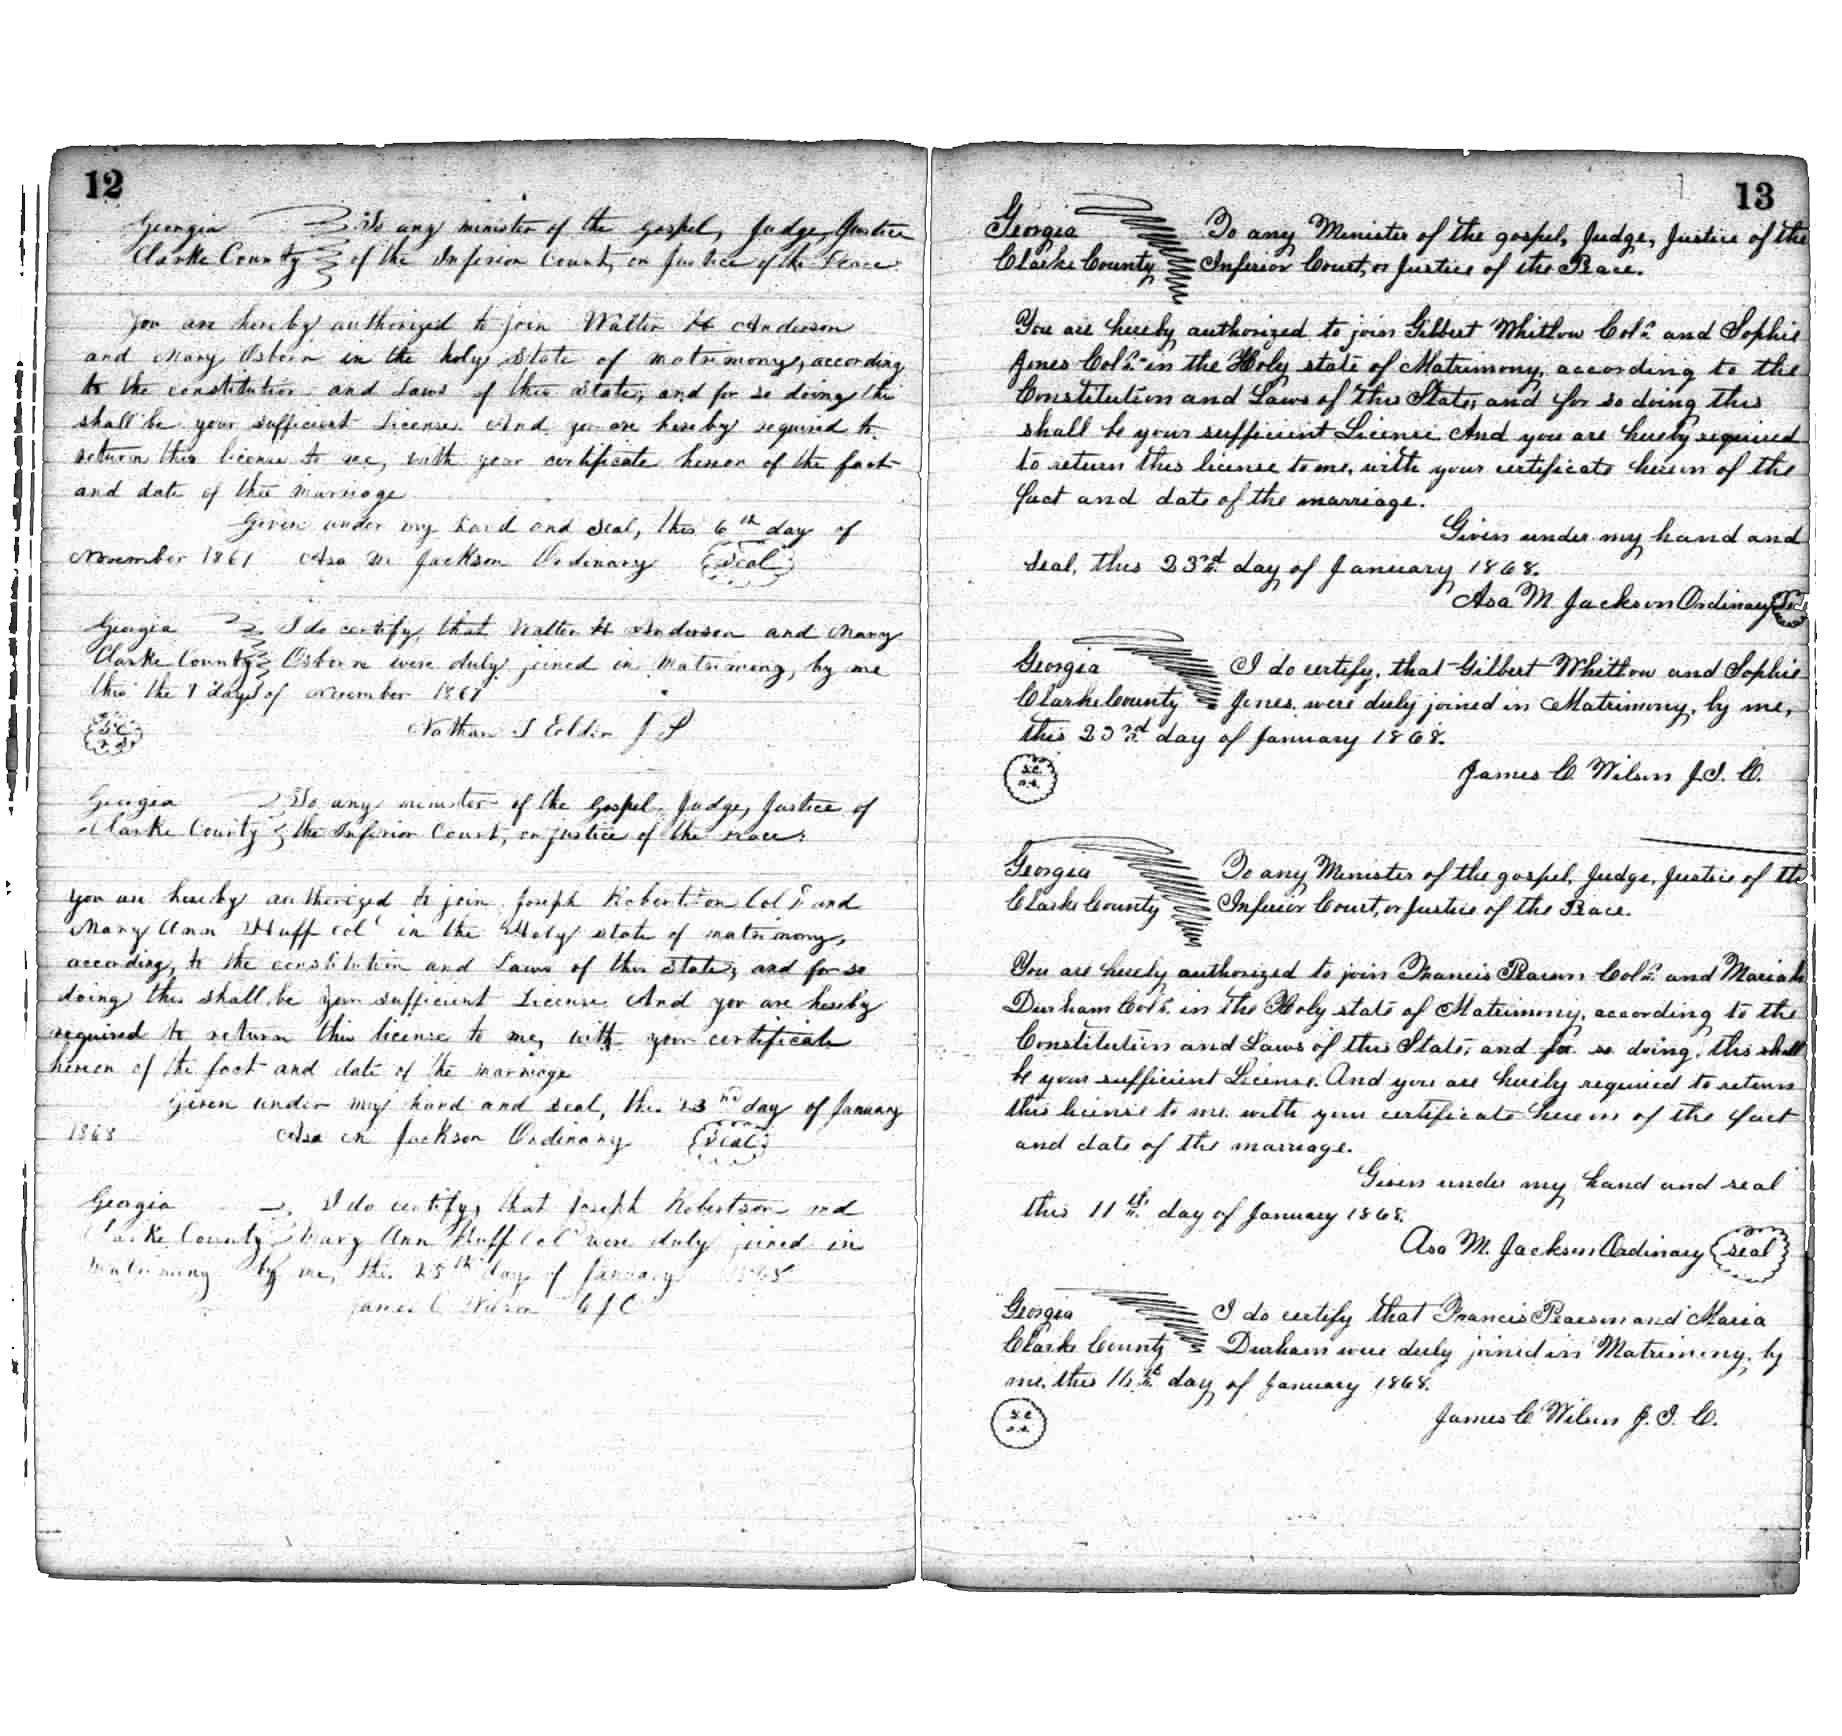 12
Georgia To any minister of the gospel, Judge, Justice
Clarke County of the Inferior Court, or Justice of the Peace
You are hereby authorized to join Walter H Anderson
and Mary Osborn in the holy State of matrimony, according
to the constitution and Laws of this State, and for so doing this
shall be your sufficient License. And you are hereby required to
return this license to me, with your certificate hereon of the fact
and date of the marriage
Given under my hand and Seal, this 6th day of
November 1867 Asa M Jackson Ordinary Seal
Georgia I do certify, that Walter H Anderson and Mary
Clarke County Osborn were duly joined in Matrimony, by me
this the 7 day of November 1867
Nathan S Eolder J P
Georgia To any minister of the Gospel, Judge, Justice of
Clarke County the Inferior Court, or justice of the Peace.
you are hereby authorized to join Joseph Robertson Cold and
Mary Ann Huff Col in the Holy state of matrimony,
according to the constitution and Laws of this State; and for so
doing this shall be your sufficient License. And you are hereby
required to return this license to me, with your certificate
hereon of the fact and date of the marriage
Given under my hand and seal, this 23nd day of January
1868 Asa M Jackson Ordinary Seal
Georgia I do certify, that Joseph Robertson and
Clarke County Mary Ann Huff Col were duly joined in
Matrimony by me, this 25th day of January 1868
James C Wilson J J C
13
Georgia To any Minister of the gospel, Judge, Justice of the
Clarke County Inferior Court, or Justice of the Peace.
You are hereby authorized to join Gilbert Whitlow Cold. and Sophie
Jones Cold. in the Holy state of Matrimony, according to the
Constitution and Laws of this State, and for so doing this
shall be your sufficient License And you are hereby required
to return this license to me, with your certificate hereon of the
fact and date of the marriage.
Given under my hand and
Seal, this 23rd day of January 1868.
Asa M Jackson Ordinary
Georgia I do certify, that Gilbert Whitlow and Sophie
Clarke County Jones were duly joined in Matrimony, by me,
this 23rd day of January 1868.
James C Wilson J. I. C.
Georgia To any Minister of the gospel, Judge, Justice of the
Clarke County Inferior Court, or Justice of the Peace.
You are hereby authorized to join Francis Pearson Cold. and Mariah
Durham Cold. in the Holy state of Matrimony, according to the
Constitution and Laws of this State; and for so doing, this shall
be your sufficient License. And you are hereby required to return
this license to me with your certificate hereon of the fact
and date of the marriage.
Given under my hand and seal
this 11th day of January 1868.
Asa M. Jackson Ordinary seal
Georgia I do certify that Francis Pearson and Maria
Clarke County Durham were duly joined in Matrimony, by
me, this 16th day of January 1868.
James C Wilson J. I. C.